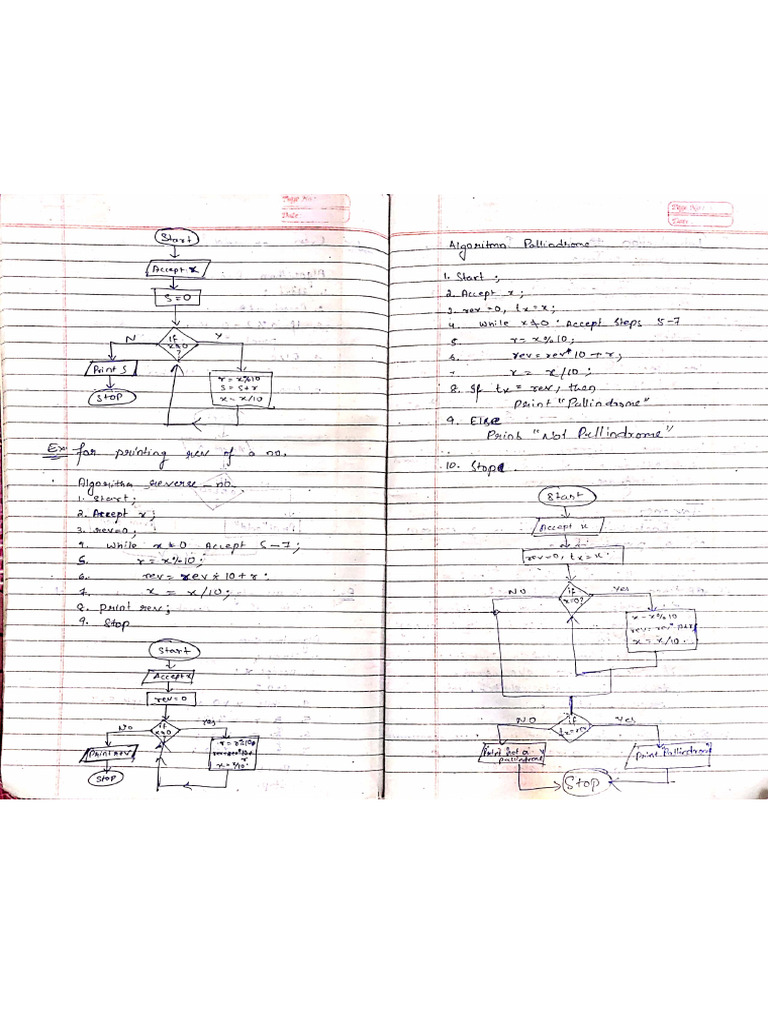 Page No:
Date:
Start
Accept x
S=0
if
x≠0
?
N
Y
Print S
Stop
r = x%10
S = S+r
x = x/10
Ex for printing rev of a no.
Algorithm reverse-no.
1. Start;
2. Accept x;
3. rev=0;
4. While x≠0 Accept 5-7;
5. r=x%10;
6. rev= rev*10+r.
7. x = x/10;
8. print rev;
9. Stop
Start
Accept x
rev=0
if
x≠0
No
Yes
Print rev
Stop
Page No:
Date:
Algorithm Pallindrome
1. Start;
2. Accept x;
3. rev=0, tx=x;
4. While x≠0 Accept Steps 5-7
5. r=x%10;
6. rev=rev*10+r;
7. x = x/10;
8. If tx = rev, then
print "Pallindrome"
9. Else
Print "Not Pallindrome"
10. Stop
Start
Accept x
rev=0, tx=x
if
NO
Yes
x = x/10
if
tx=rev
NO
Yes
Print not a
pallindrome
Print Pallindrome
Stop